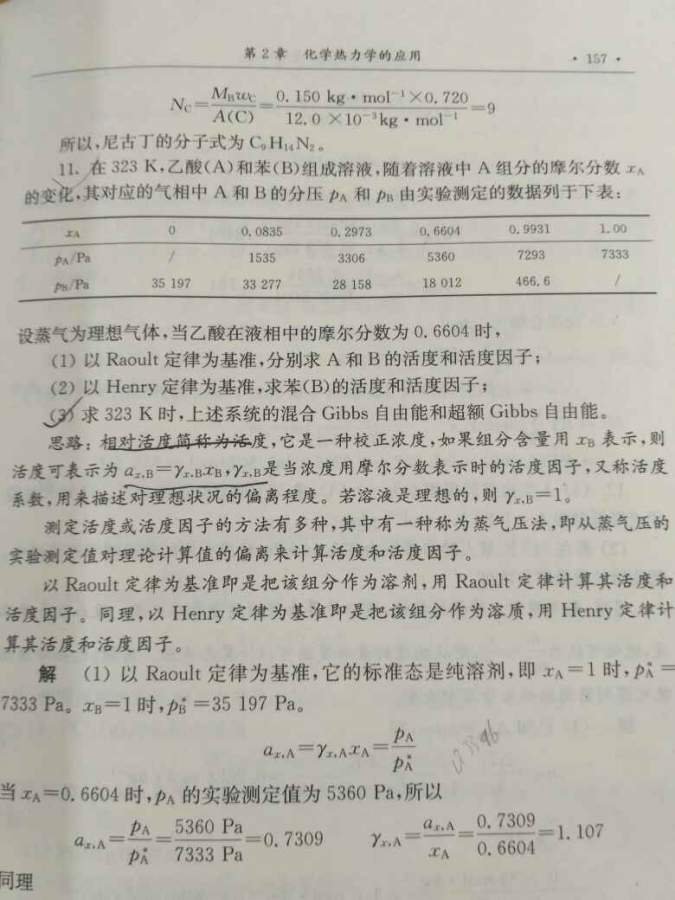 第 2 章 化学热力学的应用 · 157 ·
N_C = M_B w_C / A(C) = 0.150 kg · mol⁻¹ × 0.720 / 12.0 × 10⁻³ kg · mol⁻¹ = 9
所以,尼古丁的分子式为 C₉H₁₄N₂。
11. 在 323 K,乙酸(A)和苯(B)组成溶液,随着溶液中 A 组分的摩尔分数 x_A
的变化,其对应的气相中 A 和 B 的分压 p_A 和 p_B 由实验测定的数据列于下表:
x_A 0 0.0835 0.2973 0.6604 0.9931 1.00
p_A/Pa / 1535 3306 5360 7293 7333
p_B/Pa 35 197 33 277 28 158 18 012 466.6 /
设蒸气为理想气体,当乙酸在液相中的摩尔分数为 0.6604 时,
(1) 以 Raoult 定律为基准,分别求 A 和 B 的活度和活度因子;
(2) 以 Henry 定律为基准,求苯(B)的活度和活度因子;
(3) 求 323 K 时,上述系统的混合 Gibbs 自由能和超额 Gibbs 自由能。
思路:相对活度简称为活度,它是一种校正浓度,如果组分含量用 x_B 表示,则
活度可表示为 a_{x,B}=γ_{x,B}x_B,γ_{x,B}是当浓度用摩尔分数表示时的活度因子,又称活度
系数,用来描述对理想状况的偏离程度。若溶液是理想的,则 γ_{x,B}=1。
测定活度或活度因子的方法有多种,其中有一种称为蒸气压法,即从蒸气压的
实验测定值对理论计算值的偏离来计算活度和活度因子。
以 Raoult 定律为基准即是把该组分作为溶剂,用 Raoult 定律计算其活度和
活度因子。同理,以 Henry 定律为基准即是把该组分作为溶质,用 Henry 定律计
算其活度和活度因子。
解 (1) 以 Raoult 定律为基准,它的标准态是纯溶剂,即 x_A=1 时,p_A^*=
7333 Pa。x_B=1 时,p_B^*=35 197 Pa。
a_{x,A}=γ_{x,A}x_A=p_A/p_A^*
当 x_A=0.6604 时,p_A 的实验测定值为 5360 Pa,所以
a_{x,A}=p_A/p_A^*=5360 Pa/7333 Pa=0.7309 γ_{x,A}=a_{x,A}/x_A=0.7309/0.6604=1.107
同理